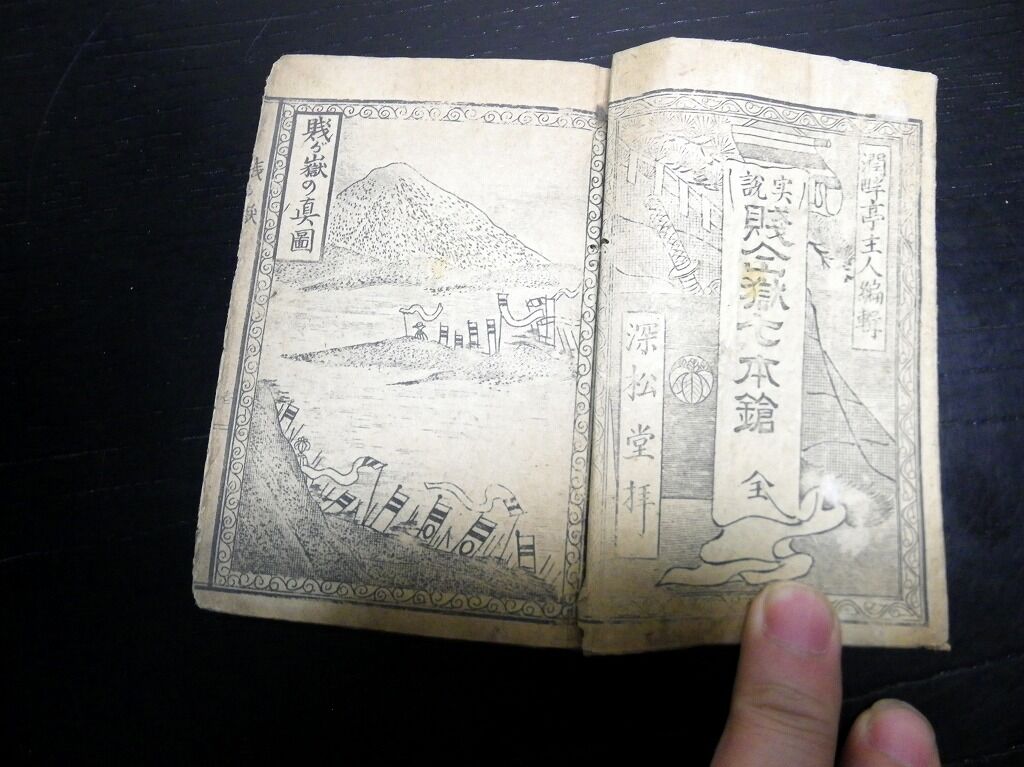 潤畔亭主人編輯
実説
賤ヶ嶽七本鎗 全
深松堂拝
賤ヶ嶽の真圖